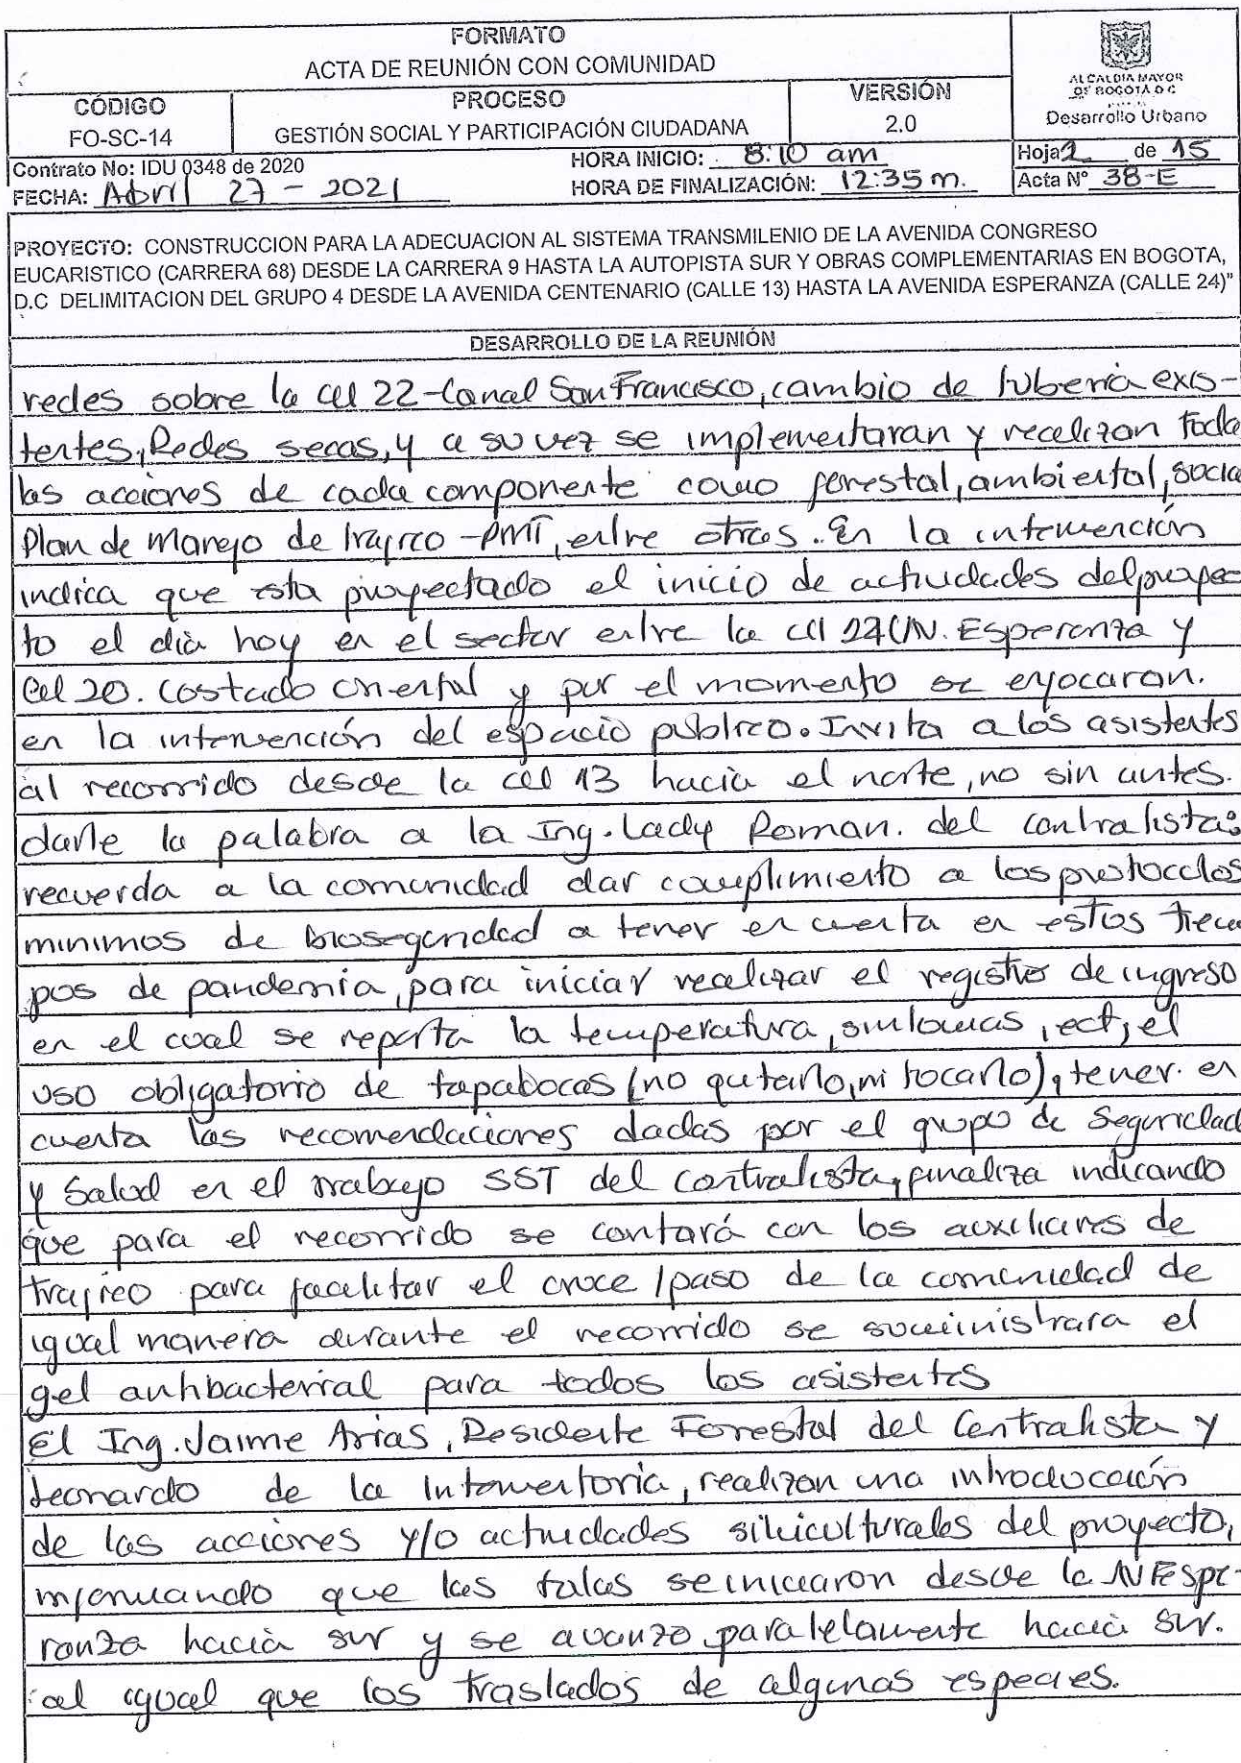 FORMATO
ACTA DE REUNIÓN CON COMUNIDAD
ALCALDIA MAYOR
DE BOGOTÁ D.C.
Desarrollo Urbano
CÓDIGO
FO-SC-14
PROCESO
GESTIÓN SOCIAL Y PARTICIPACIÓN CIUDADANA
VERSIÓN
2.0
Contrato No: IDU 0348 de 2020
HORA INICIO: 8:10 am
Hoja 2 de 15
FECHA: Abril 27 - 2021
HORA DE FINALIZACIÓN: 12:35 m.
Acta N° 38-E
PROYECTO: CONSTRUCCION PARA LA ADECUACION AL SISTEMA TRANSMILENIO DE LA AVENIDA CONGRESO
EUCARISTICO (CARRERA 68) DESDE LA CARRERA 9 HASTA LA AUTOPISTA SUR Y OBRAS COMPLEMENTARIAS EN BOGOTA,
D.C DELIMITACION DEL GRUPO 4 DESDE LA AVENIDA CENTENARIO (CALLE 13) HASTA LA AVENIDA ESPERANZA (CALLE 24)"
DESARROLLO DE LA REUNIÓN
redes sobre la cll 22-Canal San Francisco, cambio de tuberia exis-
tentes, Redes secas, y a su vez se implementaran y recalizan toda
las acciones de cada componente como forestal, ambiental, socia
Plan de Manejo de trafico -PMT, entre otras. En la intervención
indica que esta proyectado el inicio de actividades del proyec
to el dia hoy en el sector entre la cll 24(AV. Esperanza y
Cll 20. Costado oriental y por el momento se enfocaran.
en la intervención del espacio publico. Invita a los asistentes
al recorrido desde la cll 13 hacia el norte, no sin antes.
darle la palabra a la Ing. Lady Roman. del contratista:
recuerda a la comunidad dar cumplimiento a los protocolos
minimos de bioseguridad a tener en cuenta en estos tiem
pos de pandemia, para iniciar realizar el registro de ingreso
en el cual se reporta la temperatura, sintomas, ect, el
uso obligatorio de tapabocas (no quitarlo, ni tocarlo), tener en
cuenta las recomendaciones dadas por el grupo de Seguridad
y Salud en el trabajo SST del contratista, finaliza indicando
que para el recorrido se contará con los auxiliares de
trafico para facilitar el cruce / paso de la comunidad de
igual manera durante el recorrido se suministrara el
gel antibacterial para todos los asistentes
El Ing. Jaime Arias, Residente Forestal del Contratista y
Leonardo de la Interventoria, realizan una introducción
de las acciones y/o actividades silviculturales del proyecto,
informando que las talas se iniciaron desde la AV Espe-
ranza hacia sur y se avanzo paralelamente hacia sur.
al igual que los traslados de algunas especies.